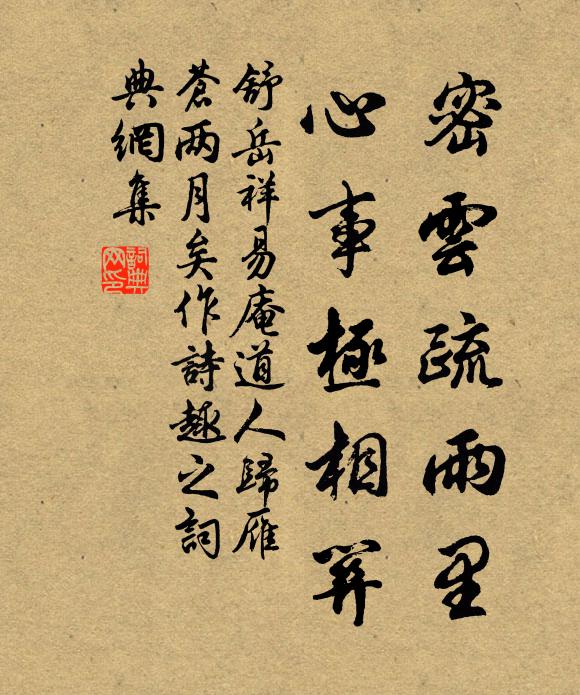 密雲疏雨里
心事極相關
舒岳祥易庵道人歸雁
蒼两月矣作詩趣之詞
典網集
詞典网印